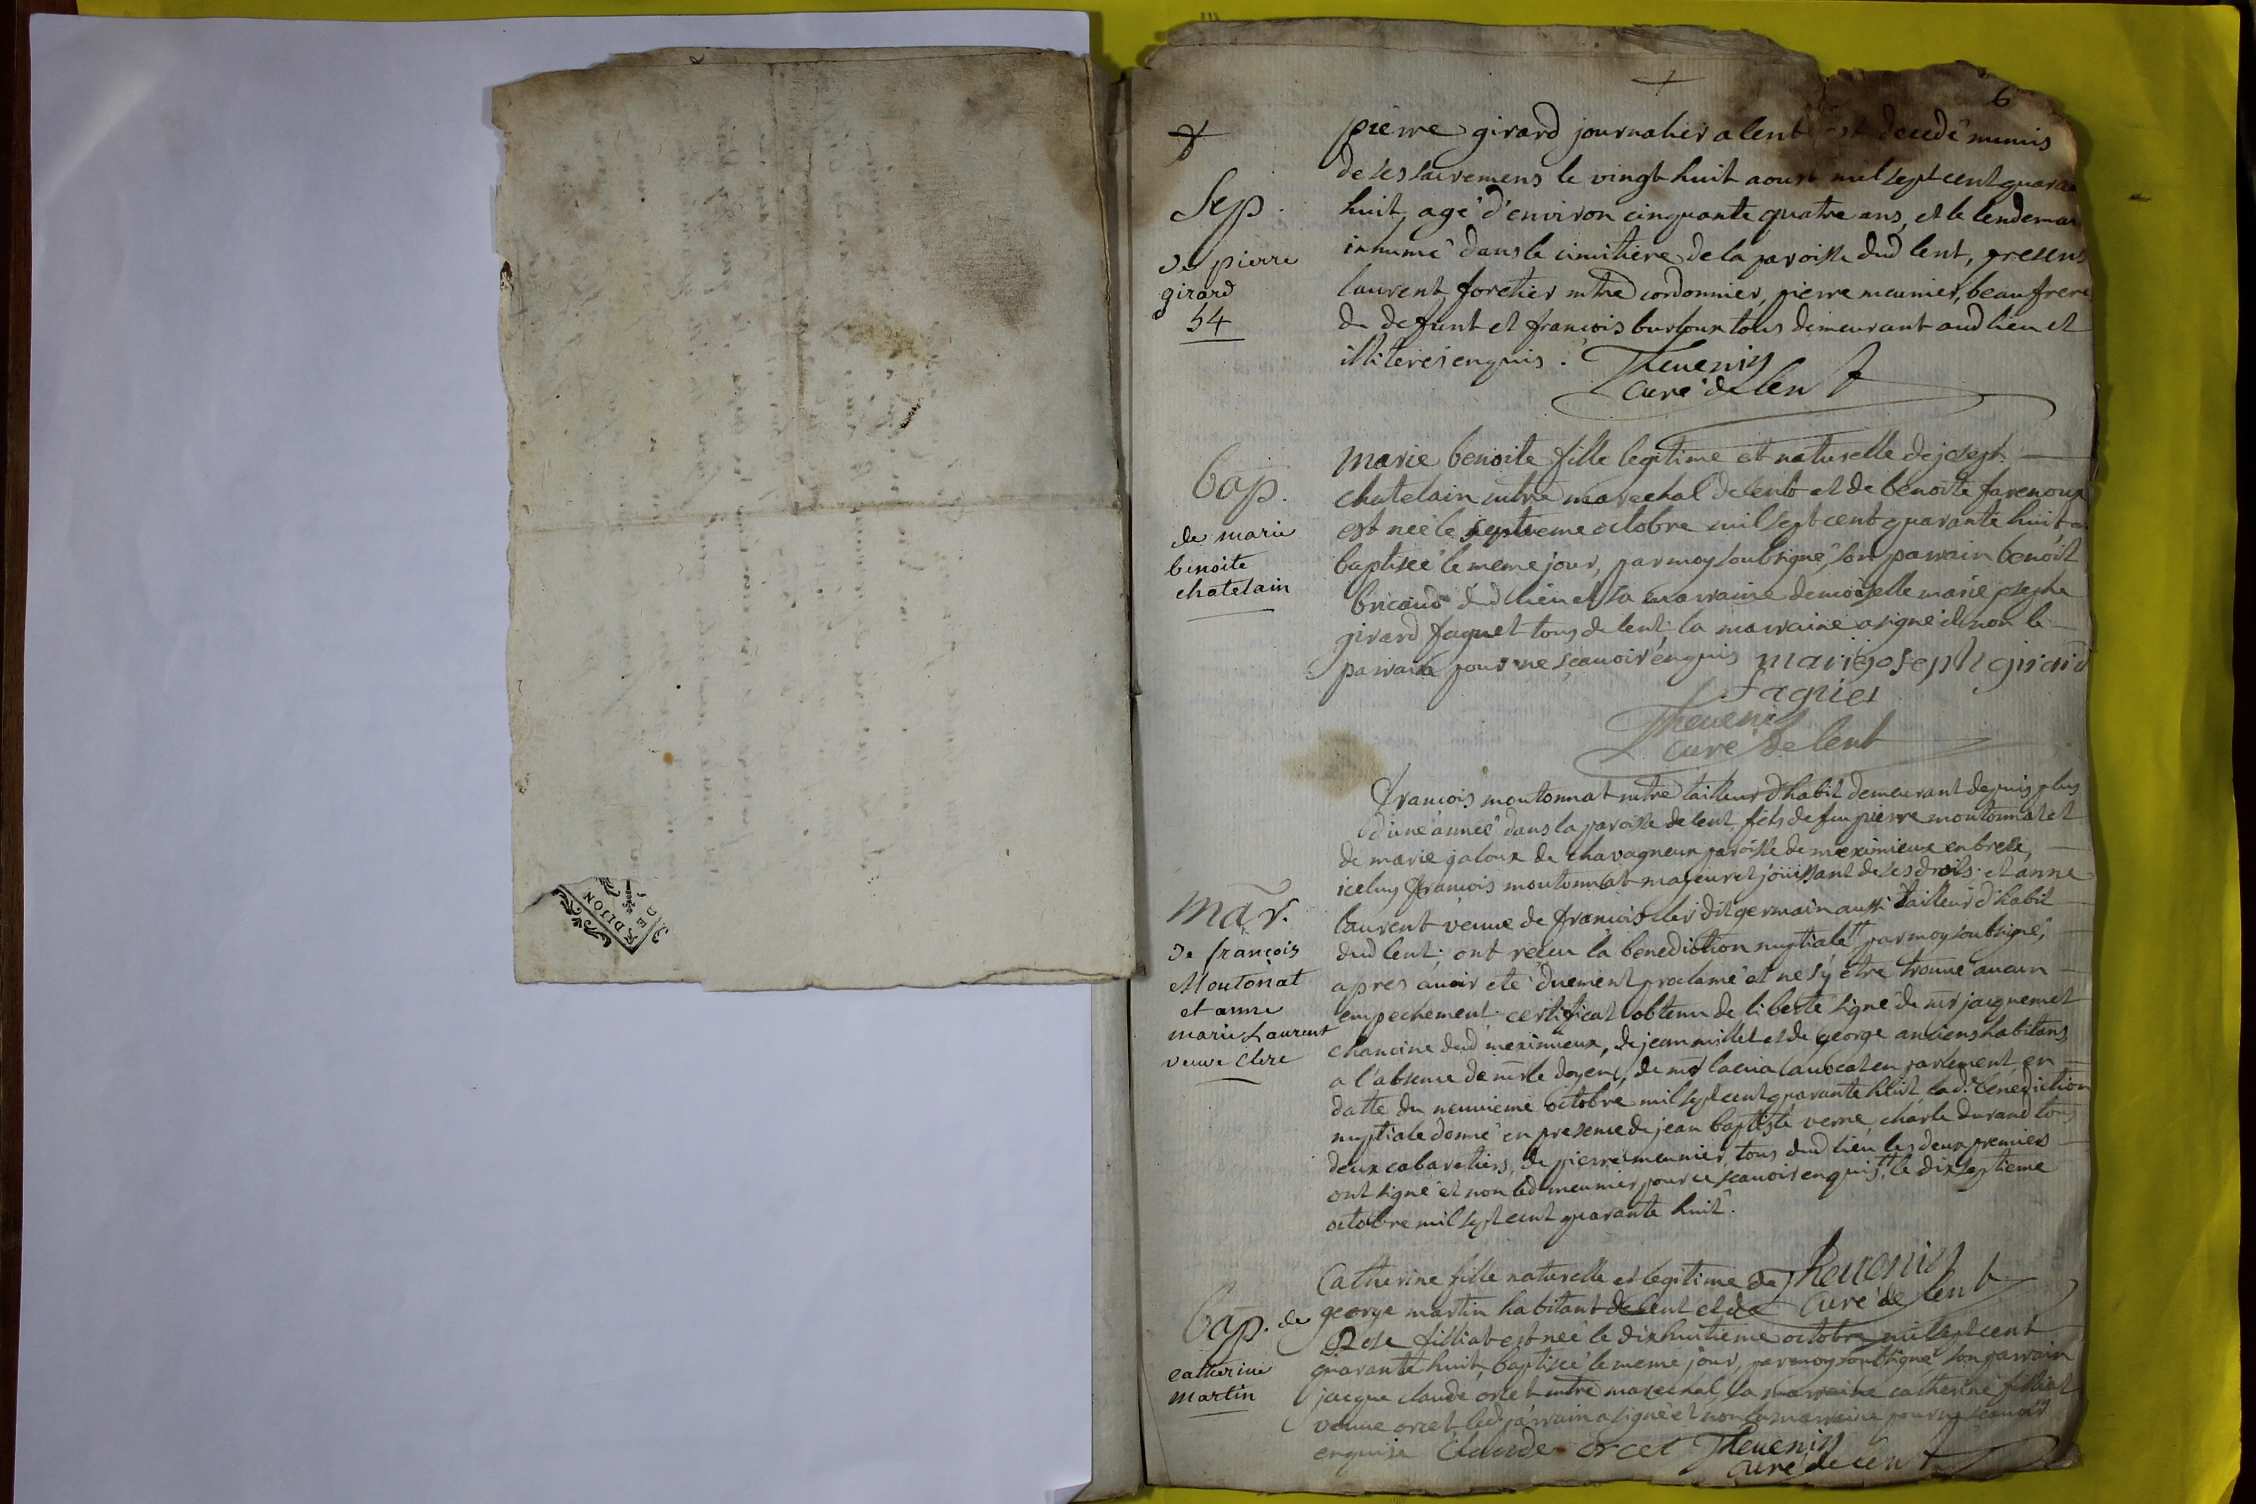 6
pierre girard journalier a lent est decedé munis
de ses sacremens le vingt huit aoust mil sept cent quaran
huit, agé d'environ cinquante quatre ans, et le lendemai
inhumé dans le cimitiere de la paroisse dud lent, presens
laurent foretier mtre cordonnier, pierre meunier, beau frere
du defunt et francois burloux tous demeurant aud lieu et
illiteres enquis.
Theuenin
curé de lent
Sep.
de pierre
girard
54
marie benoite fille legitime et naturelle de joseph
chatelain mtre marechal de lent et de benoite farenoux
est neé le septieme octobre mil sept cent quarante huit
baptiseé le meme jour, par moy soubsigné son parrain benoit
bricaud dud lieu et sa marraine demoiselle marie josephe
girard faguet tous de lent la marraine a signé et non le
parrain pour ne scauoir enquis mariejoseph girard
faguet
Theuenin
curé de lent
Bap.
de marie
benoite
chatelain
francois moutonnat mtre tailleur d'habit demeurant depuis plus
d'une anneé dans la paroisse de lent, fils de feu pierre moutonnat et
de marie galoux de chavagneux paroisse de meximieux en bresse,
iceluy francois moutonnat majeur et jouissant de ses droits et anne
laurent veuue de francois cler dit germain aussi tailleur d'habit
dud lent; ont recu la benediction nuptiale par moy soubsigné,
apres auoir eté duement proclamé et ne s'y etre trouué aucun
empechement certificat obtenu de liberté signé de mr jacquemet
chanoine dud meximieux, de jean millet et de george anciens habitans
a l'absence de mr le doyen, de mr auocat en parlement, en
datte du neuuieme octobre mil sept cent quarante huit lad. benediction
nuptiale donné en presence de jean baptiste verne, charle durand tous
deux cabaretiers, de pierre meunier tous dud lieu les deux premiers
ont signé et non led meunier pour ce scauoir enquis, le dix septieme
octobre mil sept cent quarante huit.
Theuenin
curé de lent
Mar.
de françois
Moutonat
et anne
marie Laurent
veuve clere
Catherine fille naturelle et legitime de
george martin habitant de lent et de
Rose filliat est neé le dix huitieme octobre mil sept cent
quarante huit, baptiseé le meme jour, par moy soubsigné son parrain
jacque claude orcet mtre marechal, sa marraine catherine filliat
veuue orcet led parrain a signé et non la marraine pour ne scauoir
enquise Claude orcet Theuenin
curé de lent
Bap. de
catherine
martin
DIJON